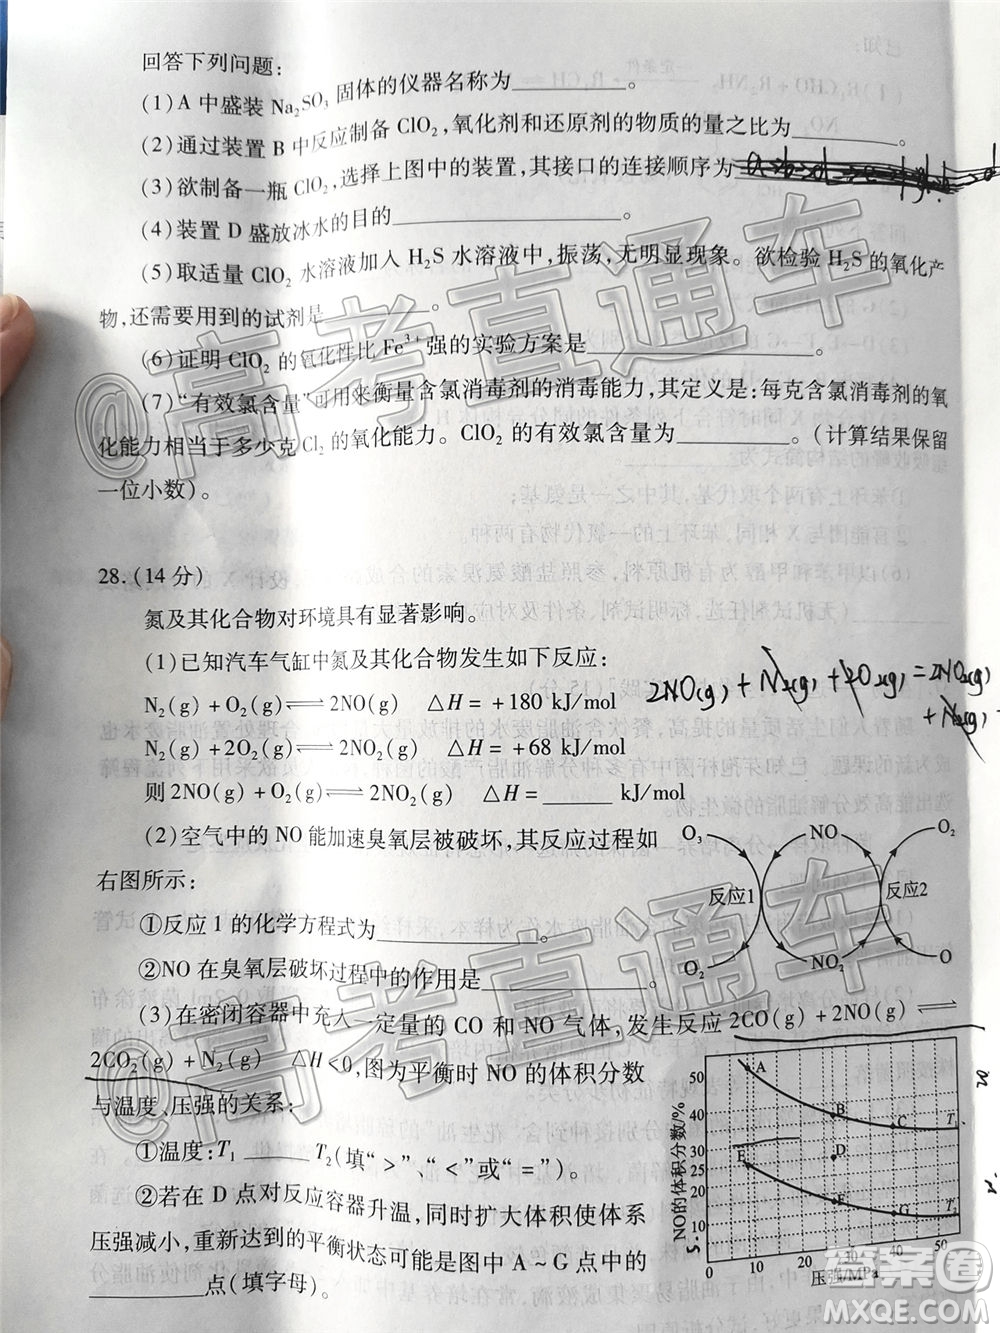 回答下列问题:
(1)A 中盛装 Na₂SO₃ 固体的仪器名称为________。
(2)通过装置 B 中反应制备 ClO₂,氧化剂和还原剂的物质的量之比为________
(3)欲制备一瓶 ClO₂,选择上图中的装置,其接口的连接顺序为
(4)装置 D 盛放冰水的目的________________。
(5)取适量 ClO₂ 水溶液加入 H₂S 水溶液中,振荡,无明显现象。欲检验 H₂S 的氧化产
物,还需要用到的试剂是________。
(6)证明 ClO₂ 的氧化性比 Fe³⁺ 强的实验方案是________________。
(7)“有效氯含量”可用来衡量含氯消毒剂的消毒能力,其定义是:每克含氯消毒剂的氧
化能力相当于多少克 Cl₂ 的氧化能力。ClO₂ 的有效氯含量为________。(计算结果保留
一位小数)。
28.(14 分)
氮及其化合物对环境具有显著影响。
(1)已知汽车气缸中氮及其化合物发生如下反应:
N₂(g)+O₂(g)⇌2NO(g) ΔH=+180 kJ/mol
2NO(g)+N₂(g)+2O₂(g)=2NO₂(g)
+N₂(g)
N₂(g)+2O₂(g)⇌2NO₂(g) ΔH=+68 kJ/mol
则 2NO(g)+O₂(g)⇌2NO₂(g) ΔH=______ kJ/mol
(2)空气中的 NO 能加速臭氧层被破坏,其反应过程如
右图所示:
O₃ NO O₂
反应1 反应2
O₂ NO₂ O
①反应 1 的化学方程式为________________。
②NO 在臭氧层破坏过程中的作用是____________。
(3)在密闭容器中充入一定量的 CO 和 NO 气体,发生反应 2CO(g)+2NO(g)⇌
2CO₂(g)+N₂(g) ΔH<0,图为平衡时 NO 的体积分数
与温度、压强的关系:
①温度:T₁________T₂(填“>”、“<”或“=”)。
②若在 D 点对反应容器升温,同时扩大体积使体系
压强减小,重新达到的平衡状态可能是图中 A~G 点中的
________点(填字母)。
NO的体积分数/%
50
40
30
25
20
15
10
5
0 10 20 30 40 50
压强/MPa
A B C T₁
D
E F G T₂
@高考直通车
@高考直通车
答案圈
MXQE.COM